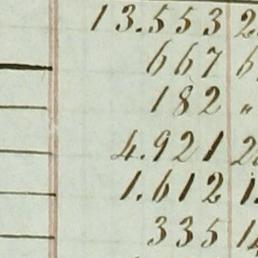 13.553 2
667 6
182 "
4.921 2
1.612 1
335 14